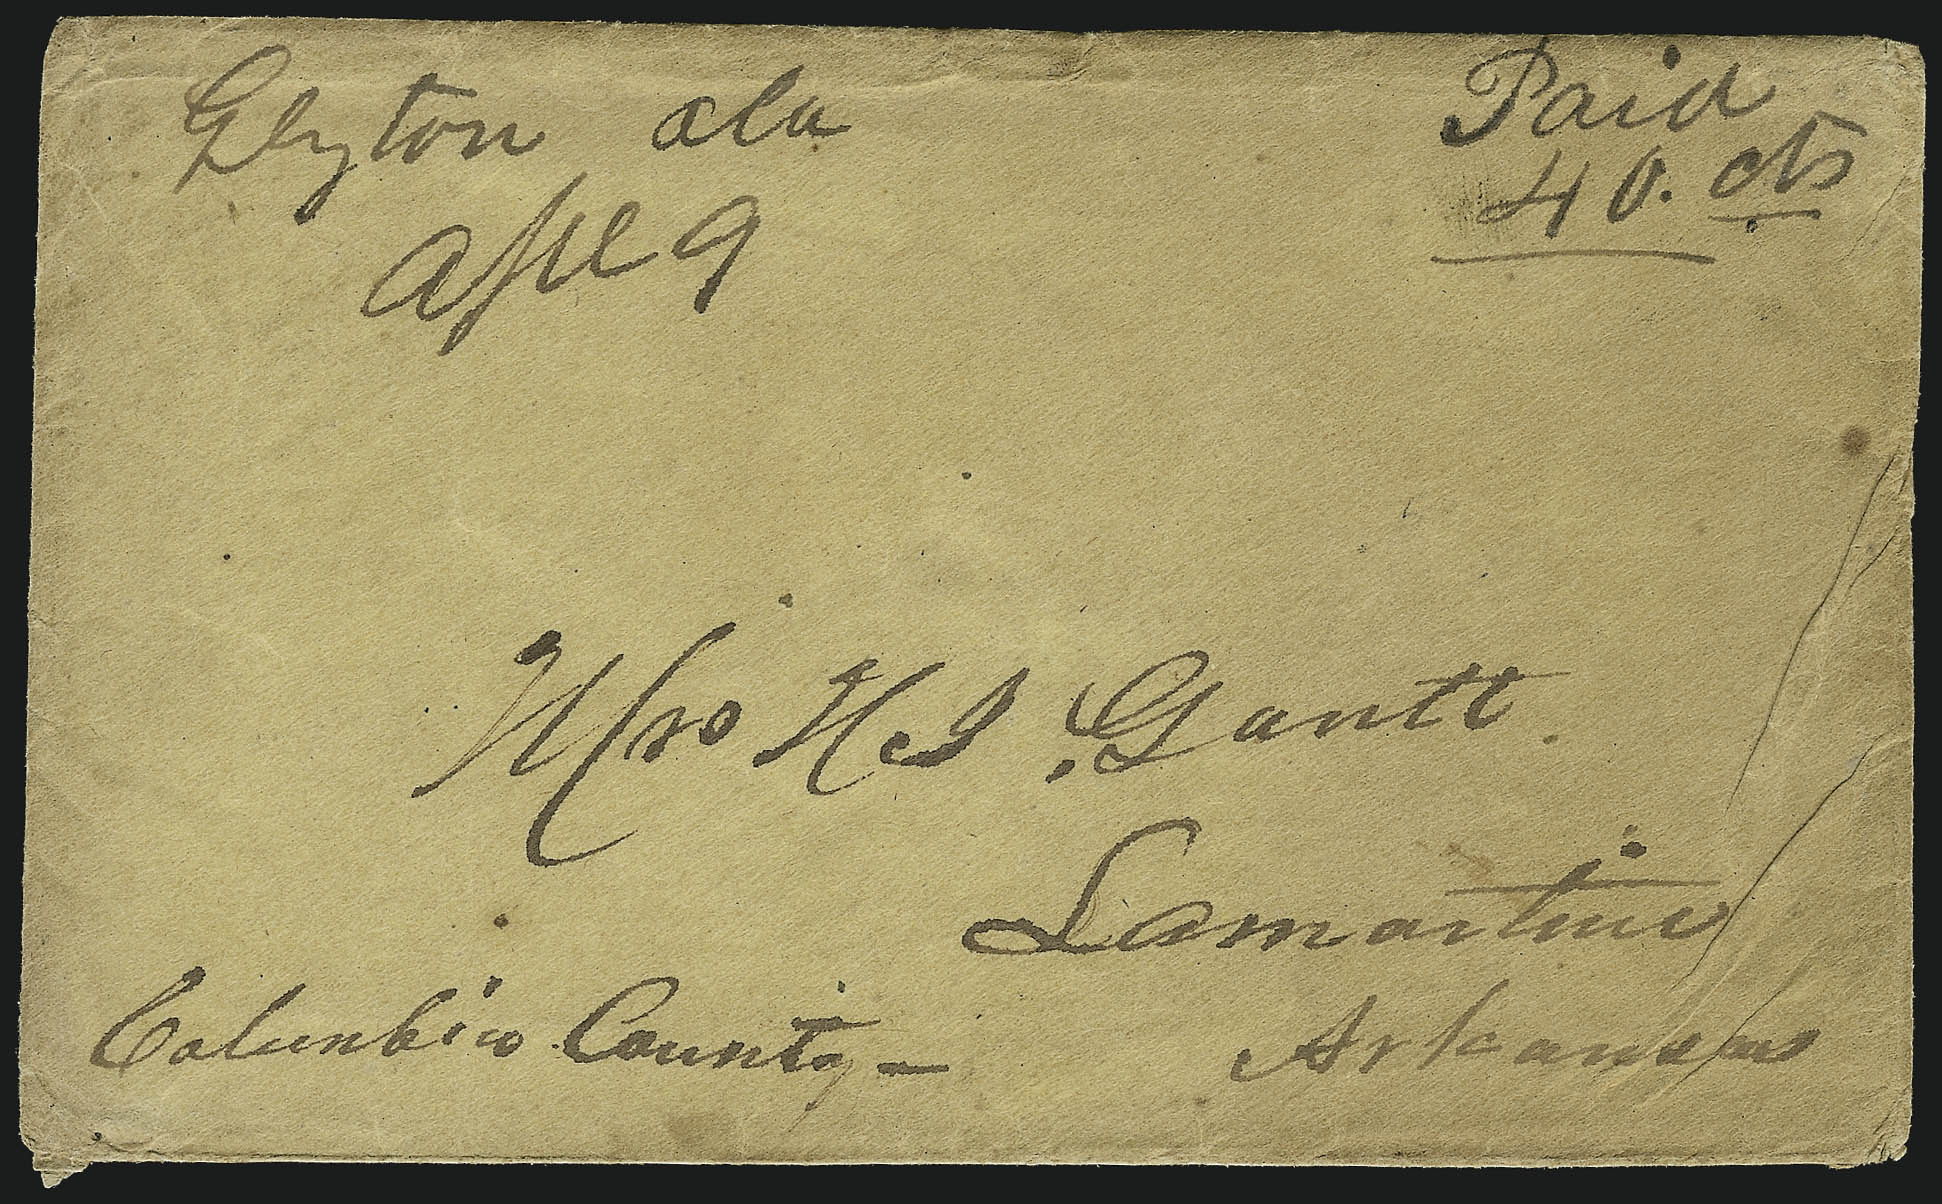 Elyton Ala
Apl 9
Paid
40. cts
Mrs H J. Gantt
Lamartine
Columbia County –
Arkansas